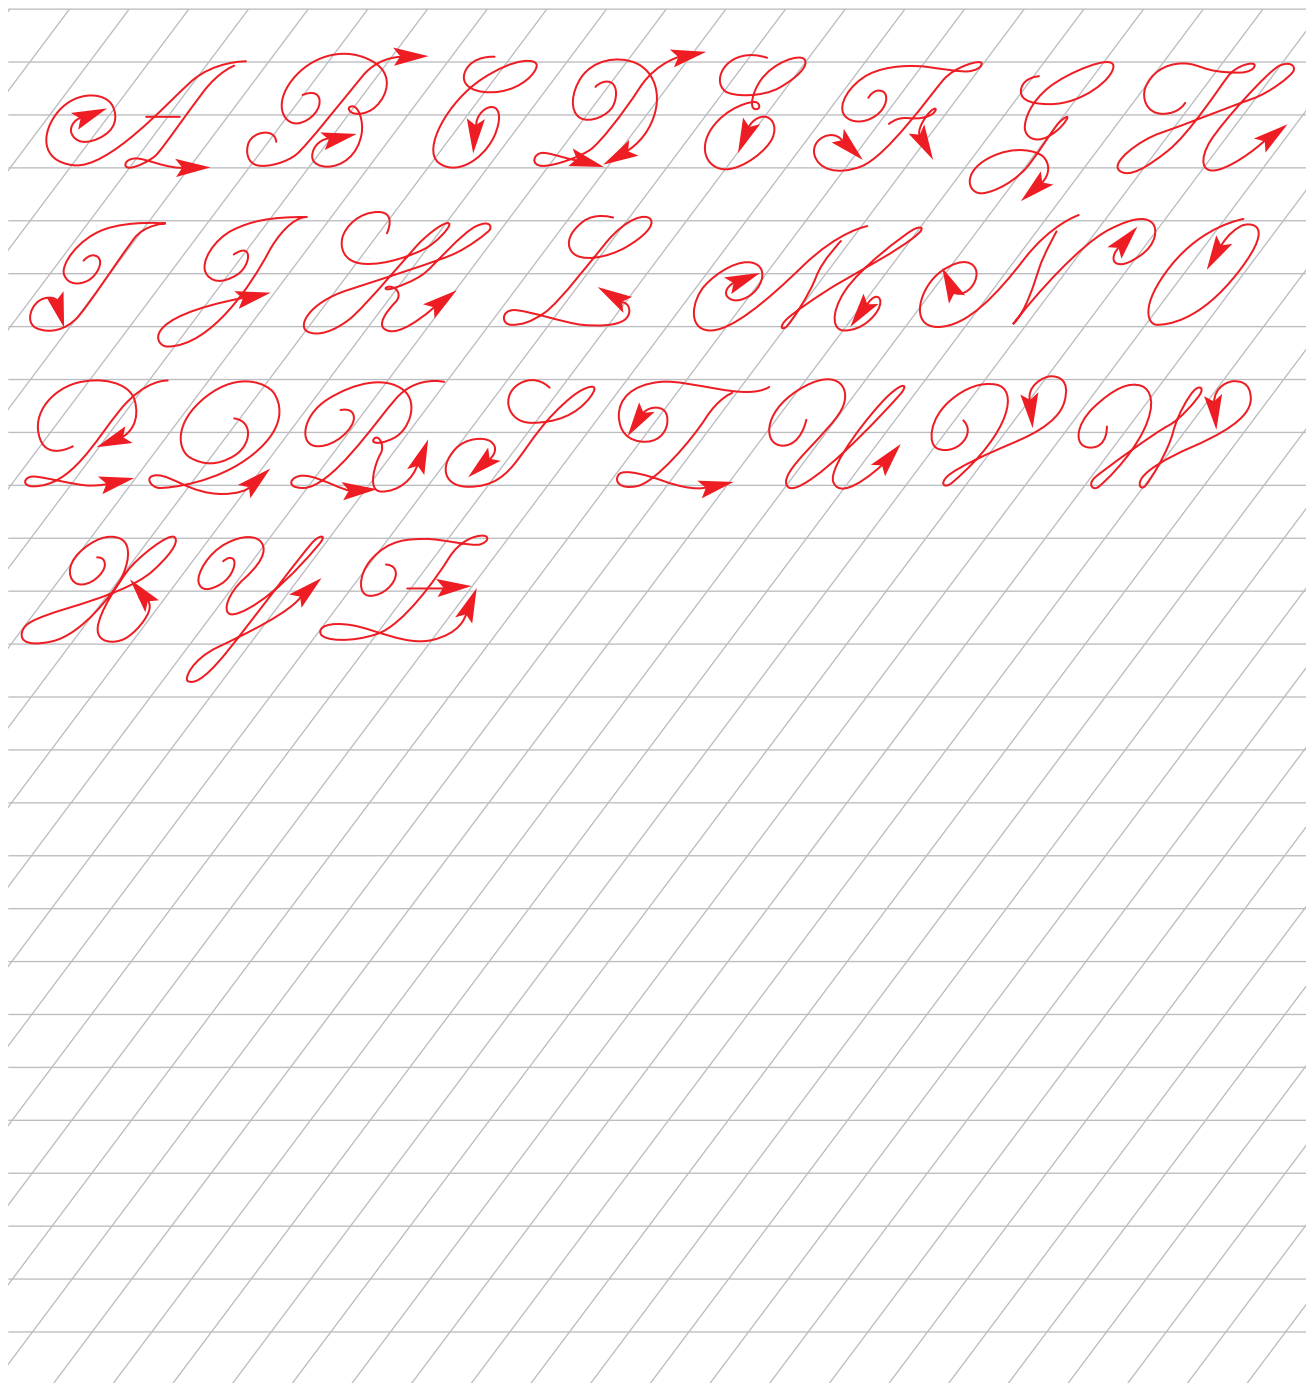 A B C D E F G H
I J K L M N O
P Q R S T U V W
X Y Z